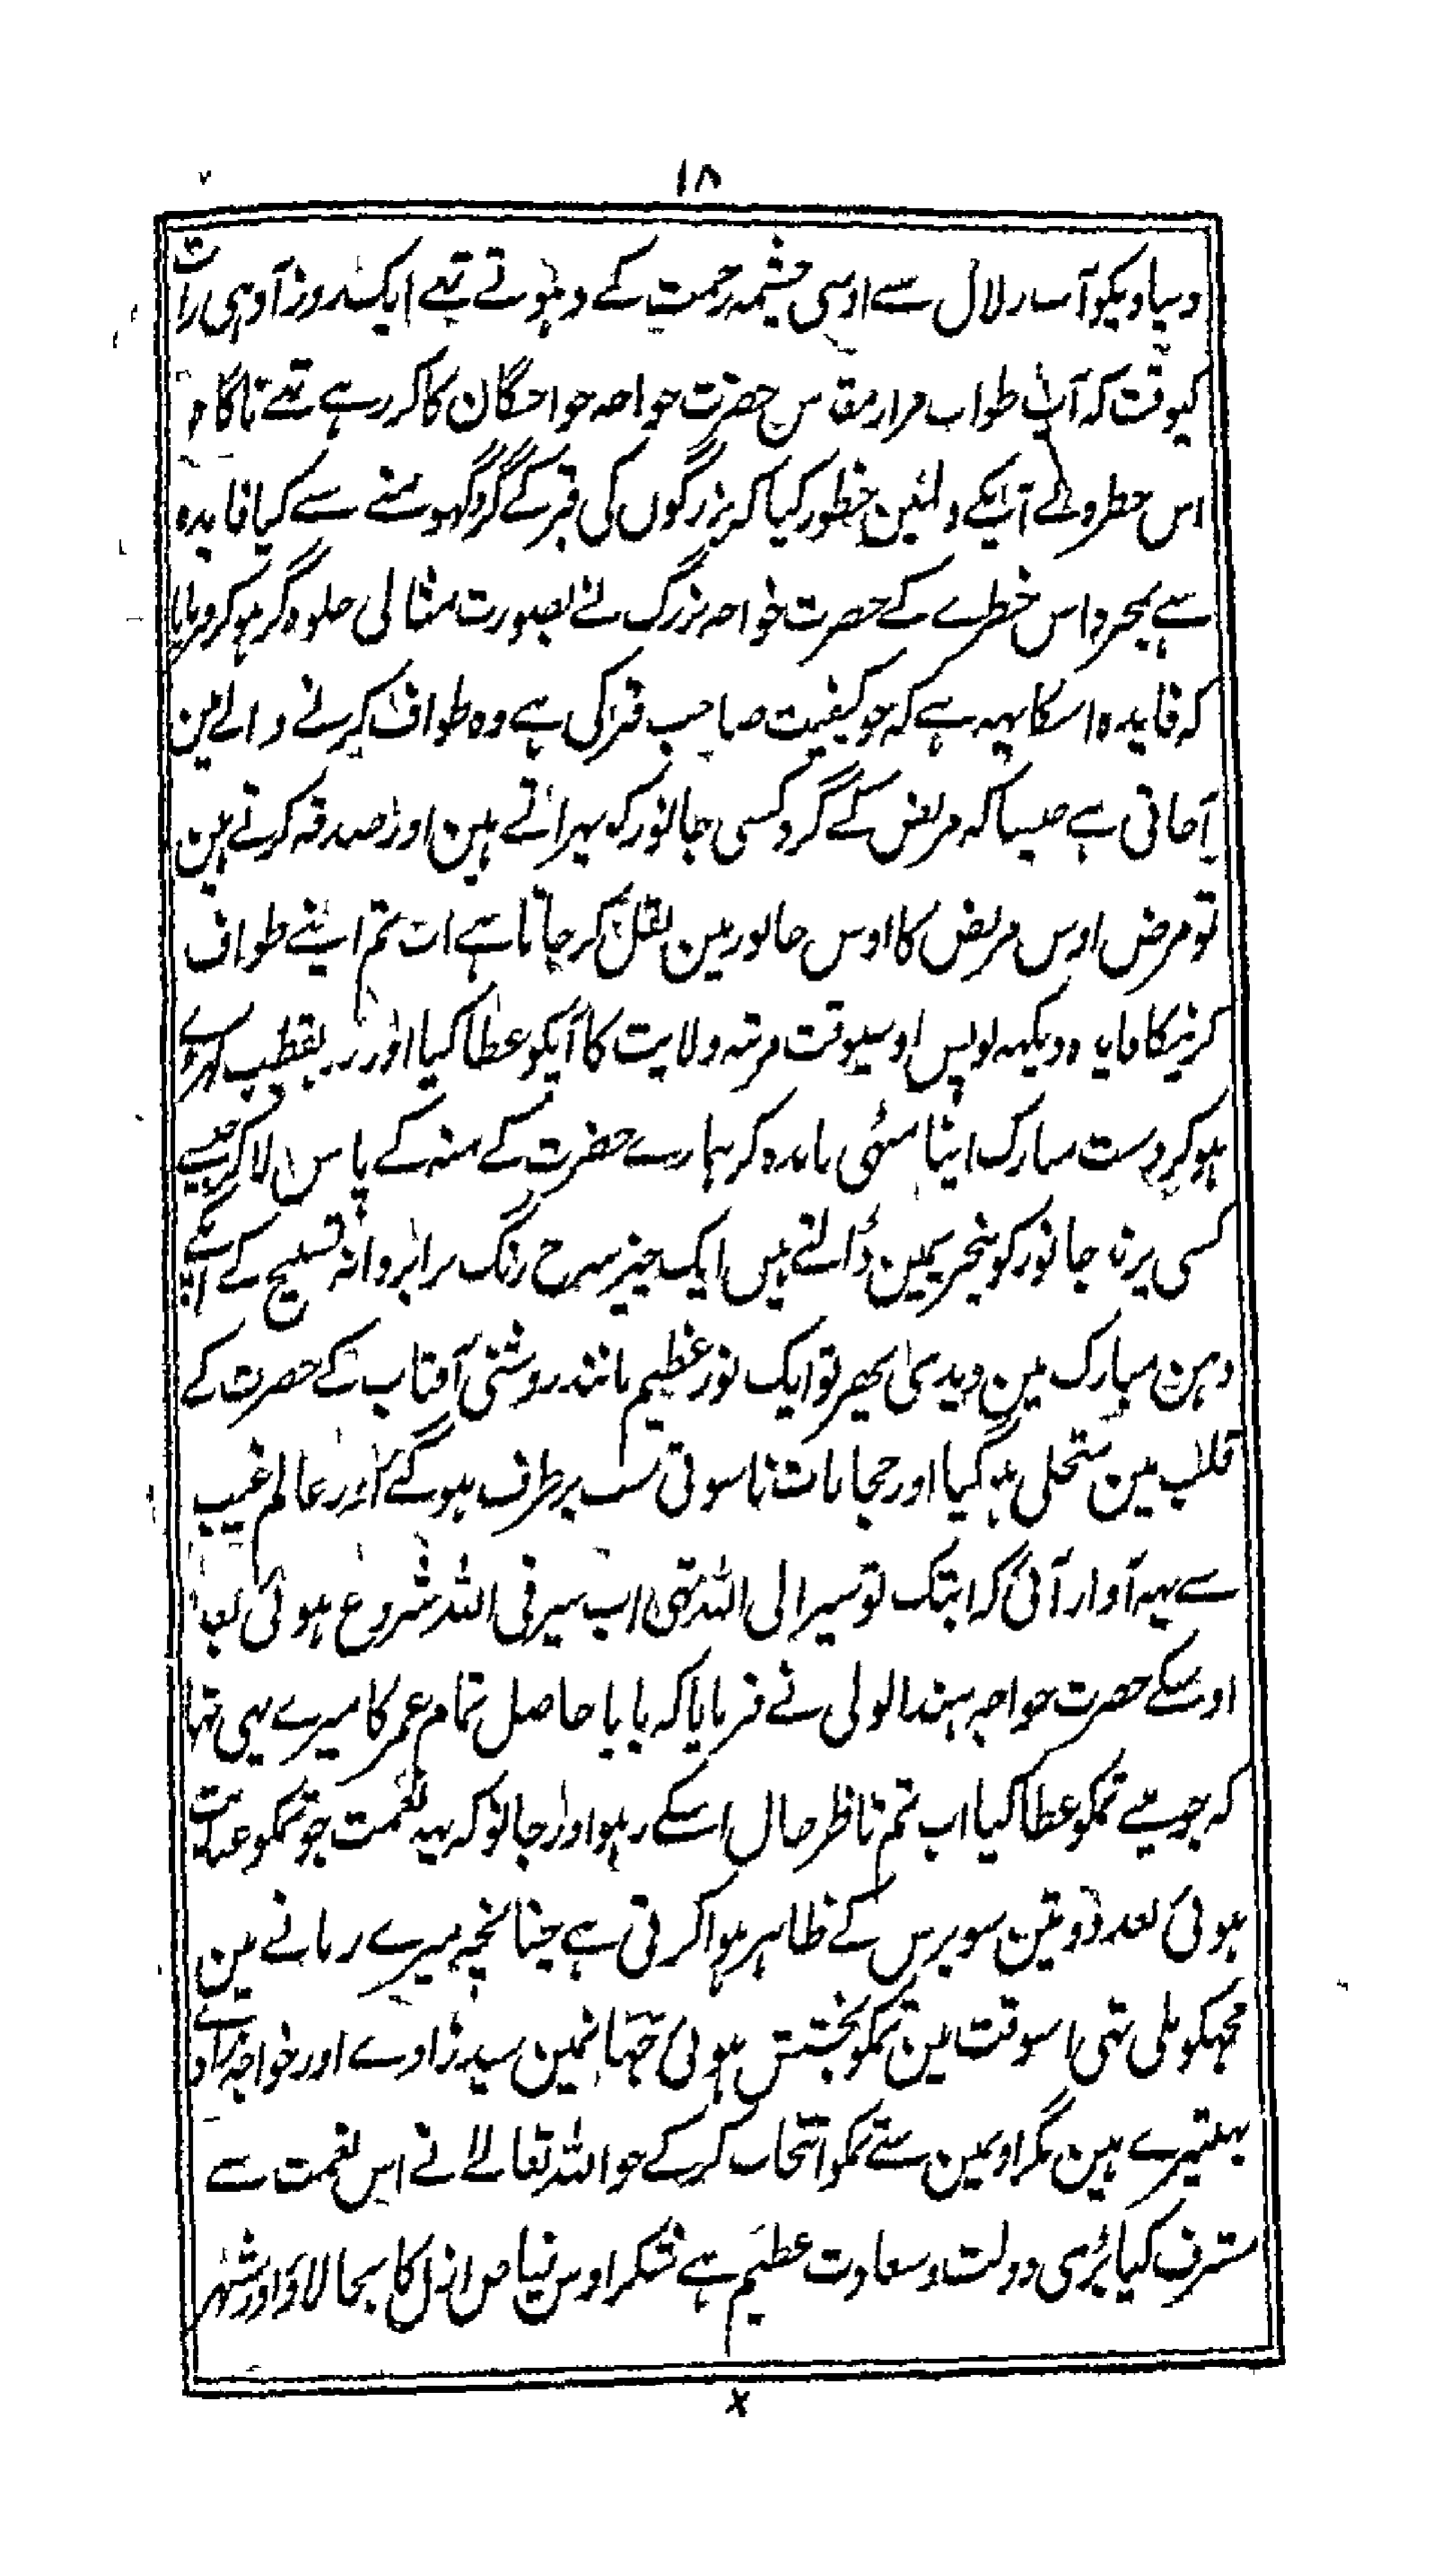 ۱۸
دنیا ویکو آب زلال سے اوسی چشمہ رحمت کے دہوتے تہے ایک روز آدہی رات
کیوقت کہ آپ طواف مزار مقدس حضرت خواجہ خواجگان کا کر رہے تہے ناگاہ
اس خطرہ نے آپکے دلمین خطور کیا کہ بزرگوں کی قبر کے گرد گہومنے سے کیا فایدہ
ہے بمجرد اس خطرے کے حضرت خواجہ بزرگ نے بصورت مثالی جلوہ گر ہو کر فرمایا
کہ فایدہ اسکا یہہ ہے کہ جو کیفیت صاحب قبر کی ہے وہ طواف کرنے والے مین
آجاتی ہے جیسا کہ مریض کے گرد کسی جانور کو پہراتے ہین اور صدقہ کرتے ہین
تو مرض اوس مریض کا اوس جانور مین نقل کر جاتا ہے اب تم اپنے طواف
کرنیکا فایدہ دیکہہ لو پس اوسیوقت مرتبہ ولایت کا آپکو عطا کیا اور
ہو کر دست مبارک اپنا مٹھی باندہ کر ہمارے حضرت کے منہ کے پاس لا کر جیسے
کسی پرند جانور کو پنجریمین ڈالتے ہیں ایک چیز سرخ رنگ برابر دانہ تسبیح کے آپکے
دہن مبارک مین دیدی پھر تو ایک نور عظیم مانند روشنی آفتاب کے حضرت کے
قلب مین متجلی ہو گیا اور حجابات ناسوتی سب برطرف ہو گئے اور عالم غیب
سے یہہ آواز آئی کہ ابتک تو سیر الی اللہ تھی اب سیر فی اللہ شروع ہوئی بعد
اوسکے حضرت خواجہ ہند الولی نے فرمایا کہ بابا حاصل تمام عمر کا میرے یہی تہا
کہ جو مینے تمکو عطا کیا اب تم ناظر حال اسکے رہو اور جانو کہ یہہ نعمت جو تمکو عنایت
ہوئی بعد دو تین سو برس کے ظاہر ہوا کرتی ہے چنانچہ میرے زمانے مین
مجہکو ملی تہی اسوقت مین تمکو بخشش ہوئی جہانمین سید زادے اور خواجہ زادے
بہتیرے ہین مگر اونمین سے تمکو انتخاب کر کے جو اللہ تعالے نے اس نعمت سے
مشرف کیا بڑی دولت و سعادت عظیم ہے شکر اوس فیاض ازل کا بجا لاؤ اور شہر
x